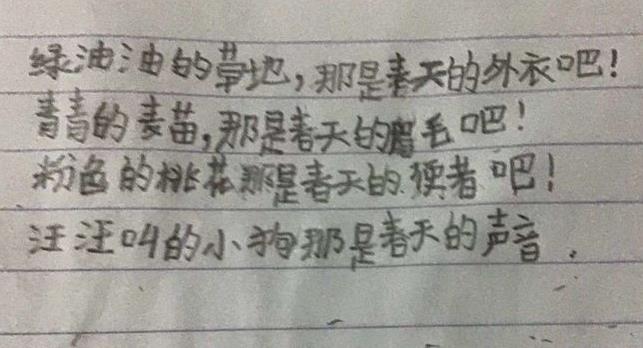 绿油油的草地，那是春天的外衣吧！
青青的麦苗，那是春天的眉毛吧！
粉色的桃花那是春天的使者吧！
汪汪叫的小狗那是春天的声音．